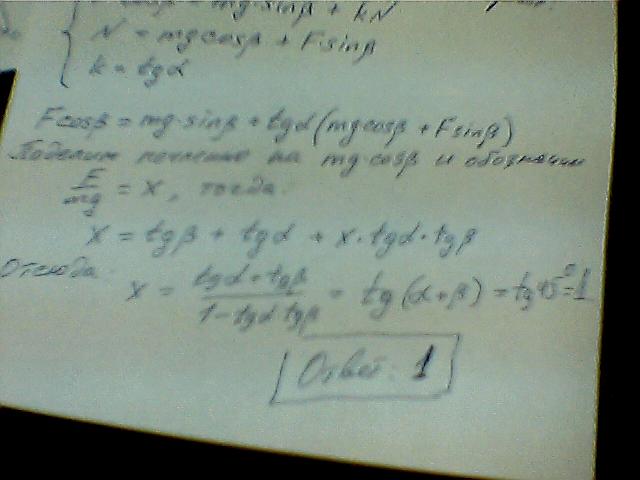 F cosβ = mg·sinβ + kN
N = mg cosβ + F sinβ
k = tgα
F cosβ = mg·sinβ + tgα(mg cosβ + F sinβ)
Поделим почленно на mg·cosβ и обозначим
F/mg = x, тогда:
x = tgβ + tgα + x·tgα·tgβ
Отсюда:
x = (tgα + tgβ)/(1 - tgα tgβ) = tg(α+β) = tg45° = 1
Ответ: 1